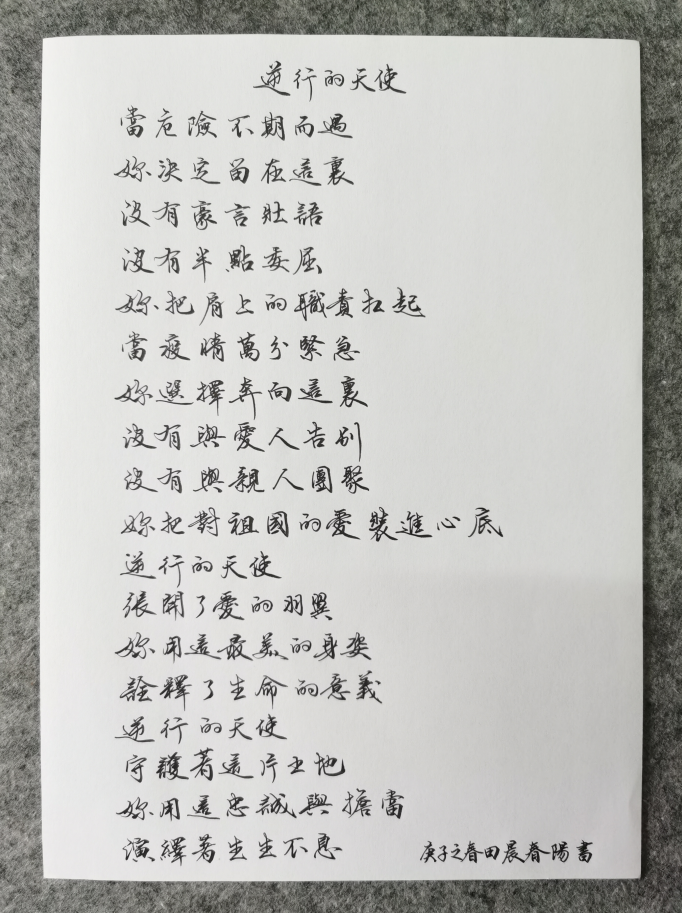 逆行的天使
當危險不期而遇
妳決定留在這裏
沒有豪言壯語
沒有半點委屈
妳把肩上的職責扛起
當疫情萬分緊急
妳選擇奔向這裏
沒有與愛人告別
沒有與親人團聚
妳把對祖國的愛裝進心底
逆行的天使
張開了愛的羽翼
妳用這最美的身姿
詮釋了生命的意義
逆行的天使
守護著這片土地
妳用這忠誠與擔當
演繹著生生不息
庚子之春田晨春陽書